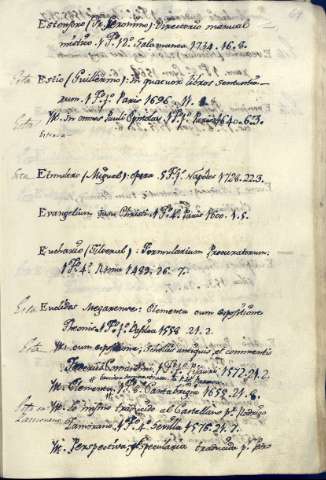 Estompou (Fr. Geronimo) Directorio manual
mistico. 1 Pº 12º Salamanca 1741. 16. 8.
Esta Estio (Guillermo): In quatuor libros sententia-
rum. 1 Pº fº. Paris 1696.
Id. In omnes Pauli Epistolas. 1 Pº fº. Paris 1640. 6. 3.
Esta Etmulero (Miguel): opera 5 Pº fº. Napoles 1728. 22. 3.
Evangelium Jesu Christi. 1 Pº 4º. Paris 1600. 1. 5.
Eucharius (Silverus): Formularium Procuratorum.
1 Pº 4º. Roma 1489. 26. 7.
Esta Euclides Megarense: Elementa cum expositione
Theonis 1 Pº fº. Basilea 1558. 21. 2.
Esta Id. cum expositione, Scholiis antiquis, et commentis
Federici Comandini 1572. 21. 2.
Id. Elementa 1 Pº 8º. Cantabrigia 1655. 21. 8.
Id. Lo mismo traducido al Castellano pr. Rodrigo
Zamorano. 1 Pº 4º. Sevilla 1576. 21. 7.
Id. Perspectiva, y Specularia traducida pr.